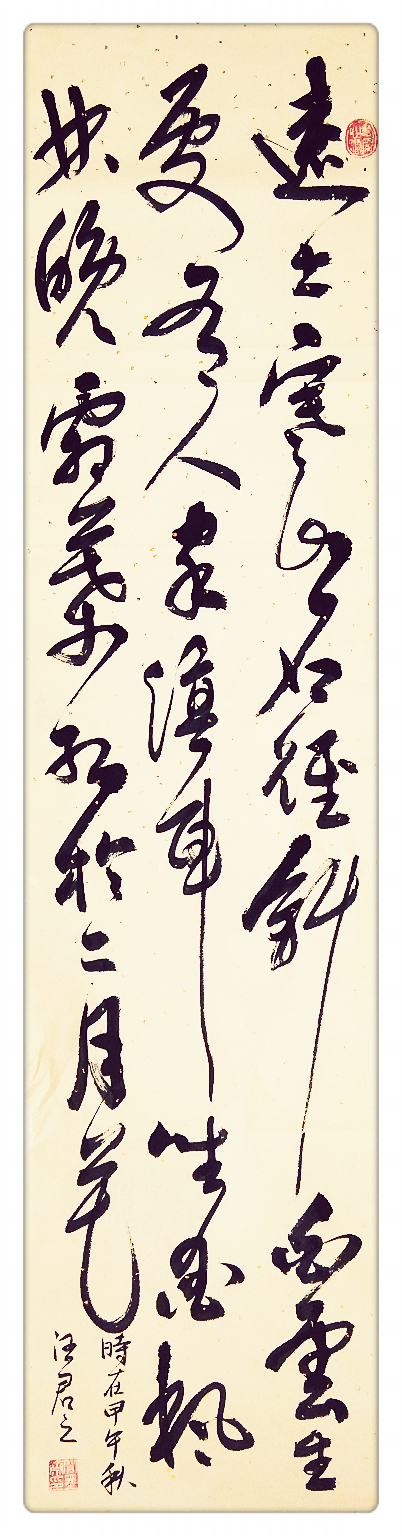 遠上寒山石徑斜白雲生
處有人家停車坐愛楓
林晚霜葉紅於二月花
時在甲午秋
汪君之